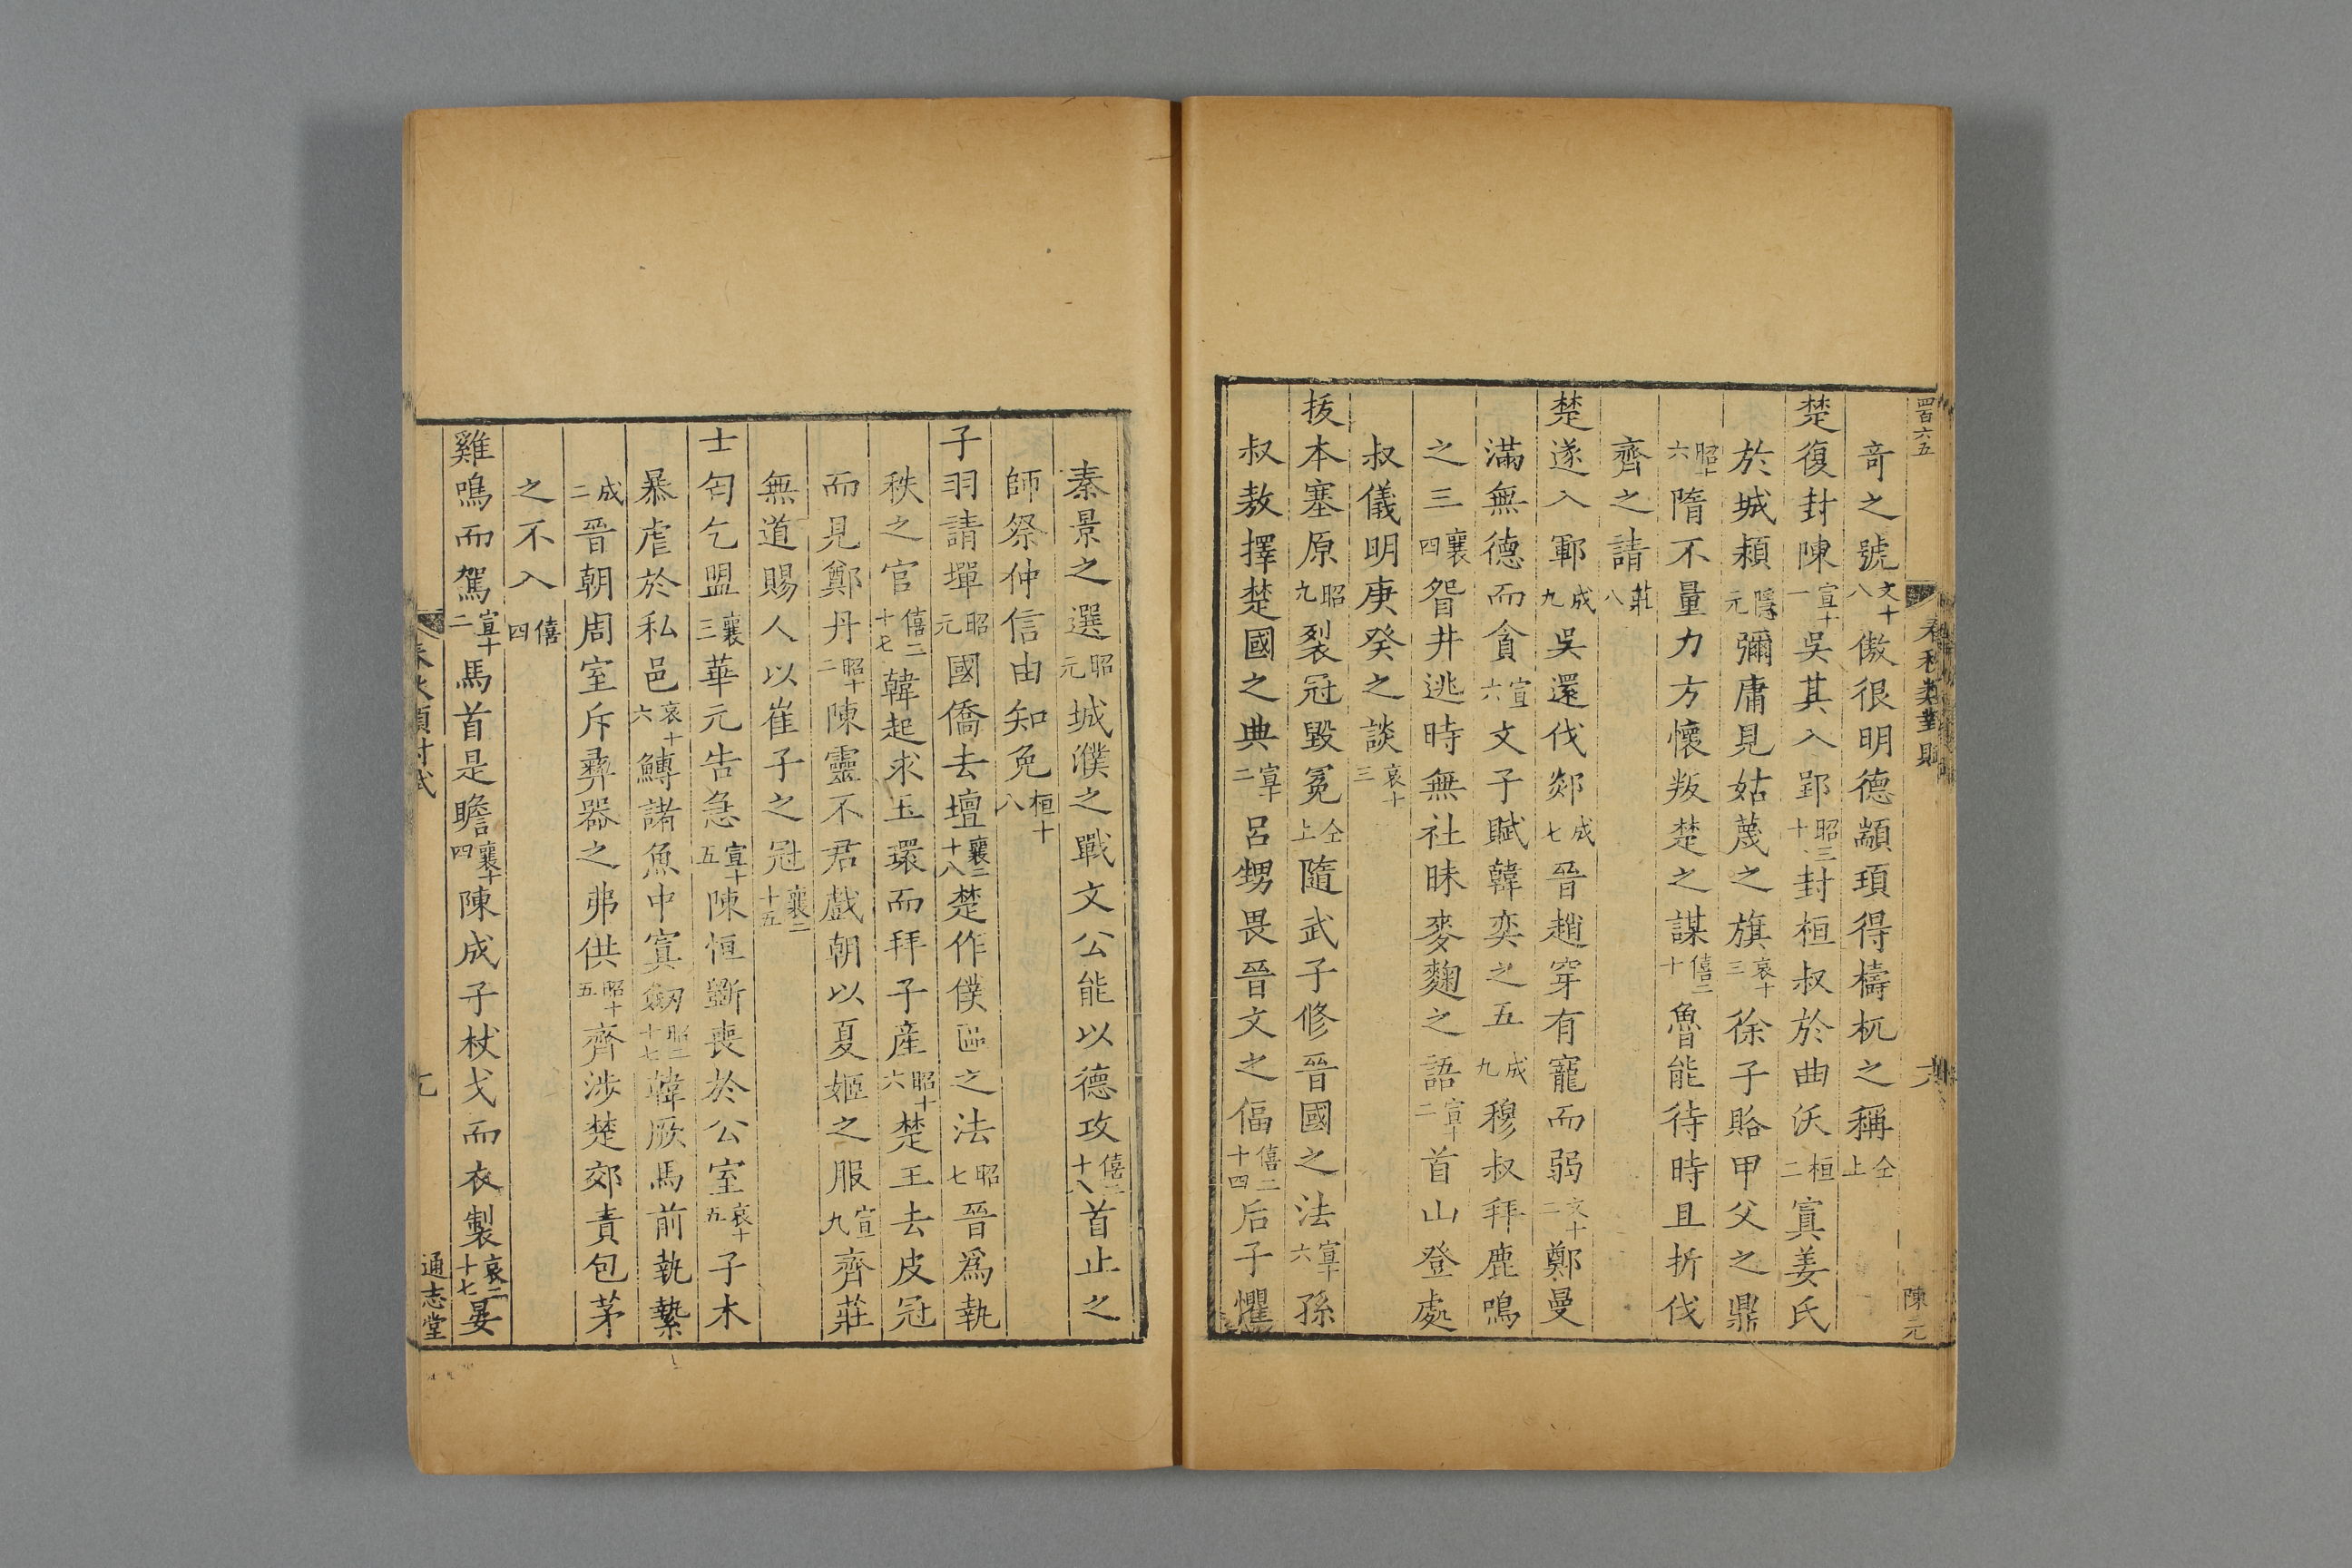 四百六五
春秋類對賦
六
陳元
奇之號文十八傲很明德顓頊得檮杌之稱仝上
楚復封陳宣十一吳其入郢昭三十封桓叔於曲沃桓二寘姜氏
於城潁隱元彌庸見姑蔑之旗哀十三徐子賂甲父之鼎
昭十六隋不量力方懷叛楚之謀僖二十魯能待時且折伐
齊之請莊八
楚遂入鄆成九吳還伐郯成七晉趙穿有寵而弱文十二鄭曼
滿無德而貪宣六文子賦韓奕之五成九穆叔拜鹿鳴
之三襄四眢井逃時無社昧麥麴之語宣十二首山登處
叔儀明庚癸之談哀十三
拔本塞原昭九裂冠毀冕仝上隨武子修晉國之法宣十六孫
叔敖擇楚國之典宣十二呂甥畏晉文之偪僖二十四后子懼
秦景之選昭元城濮之戰文公能以德攻僖二十八首止之
師祭仲信由知免桓十八
子羽請墠昭元國僑去壇襄二十八楚作僕區之法昭七晉爲執
秩之官僖二十七韓起求玉環而拜子產昭十六楚王去皮冠
而見鄭丹昭十二陳靈不君戲朝以夏姬之服宣九齊莊
無道賜人以崔子之冠襄二十五
士匄乞盟襄三華元告急宣十五陳恒斲喪於公室哀十五子木
暴虐於私邑哀十六鱄諸魚中寘劒昭二十七韓厥馬前執縶
成二晉朝周室斥彛器之弗供昭十五齊涉楚郊責包茅
之不入僖四
雞鳴而駕宣十二馬首是瞻襄十四陳成子杖戈而衣製哀二十七晏
春秋類對賦
七
通志堂